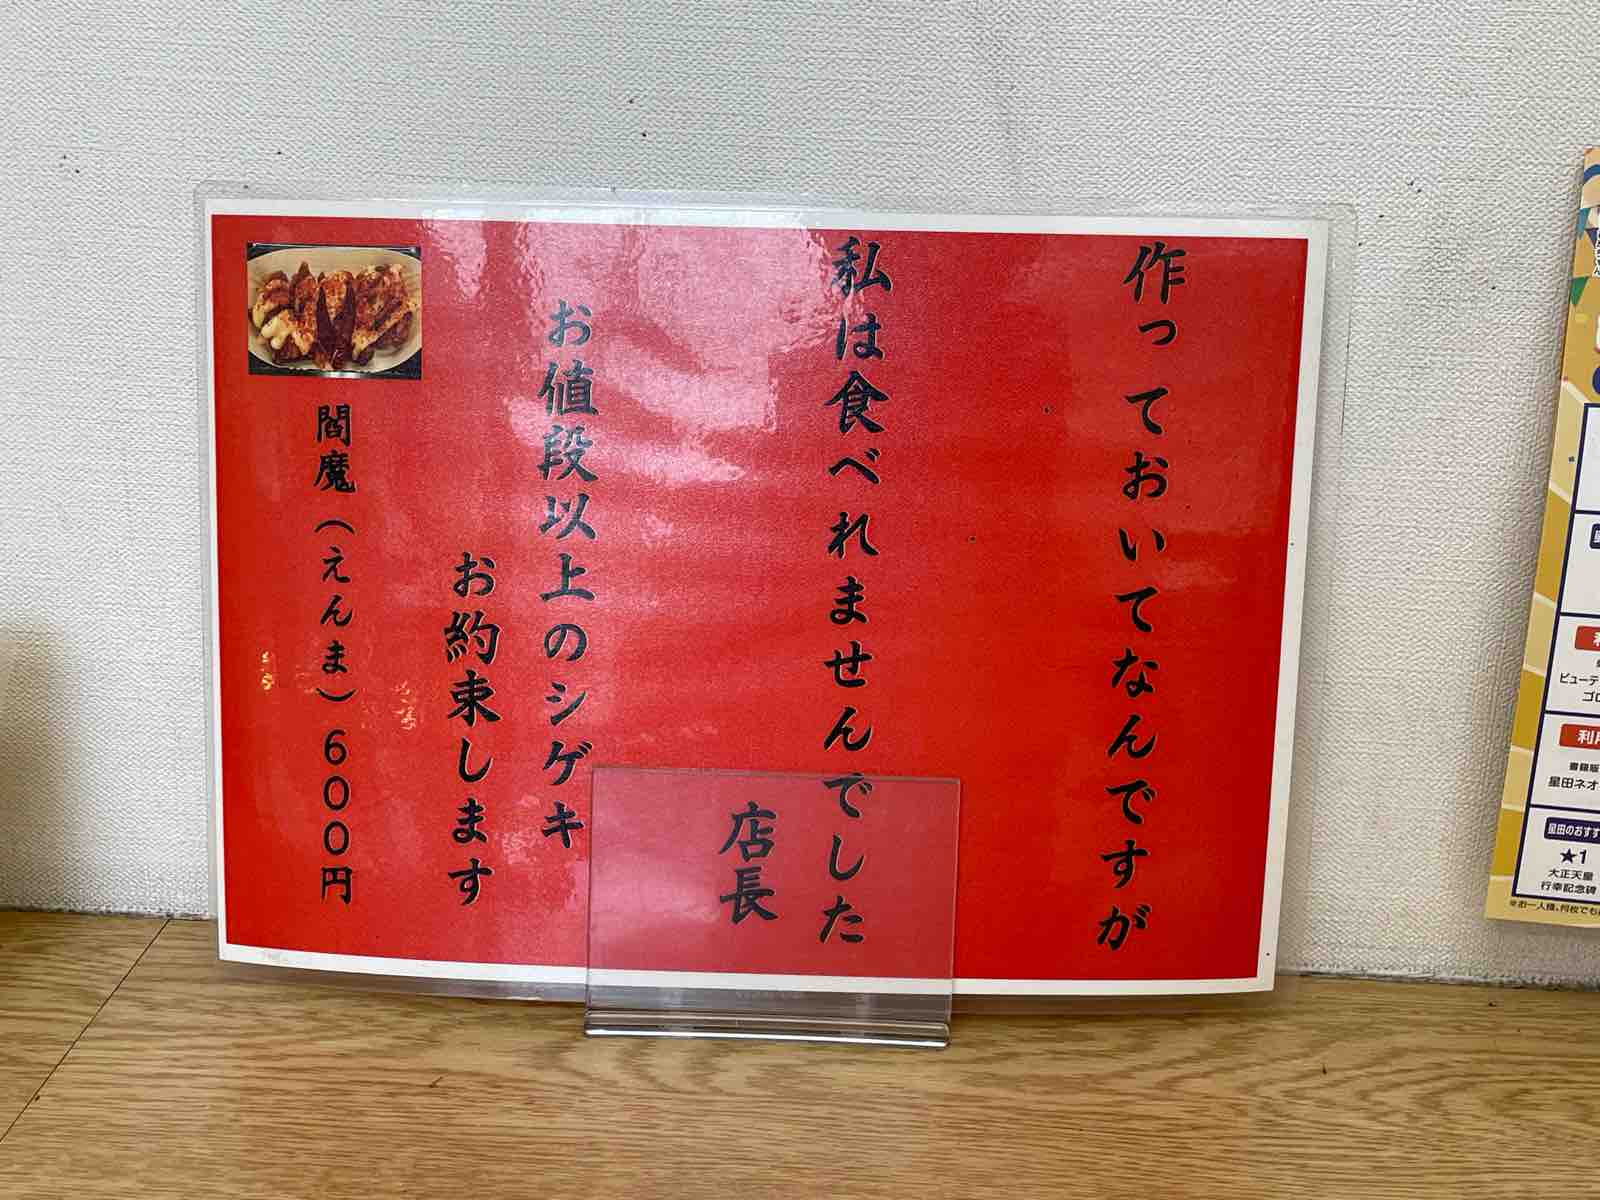 作っておいてなんですが
私は食べれませんでした
店長
お値段以上のシゲキ
お約束します
閻魔（えんま）600円
ビューテ
利用
書籍販
星田ネオ
星田のおすす
★1
大正天皇
行幸記念碑
※お一人様、何枚でも